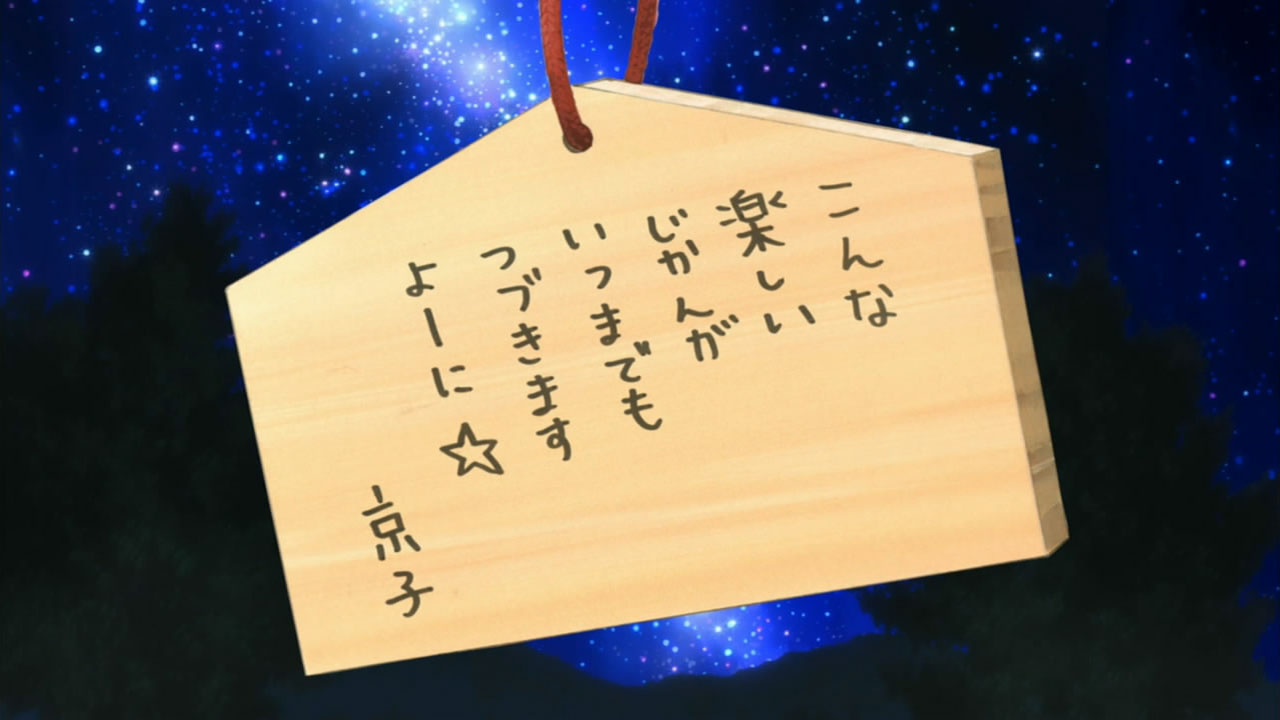 こんな
楽しい
じかんが
いつまでも
つづきます
よーに☆
京子